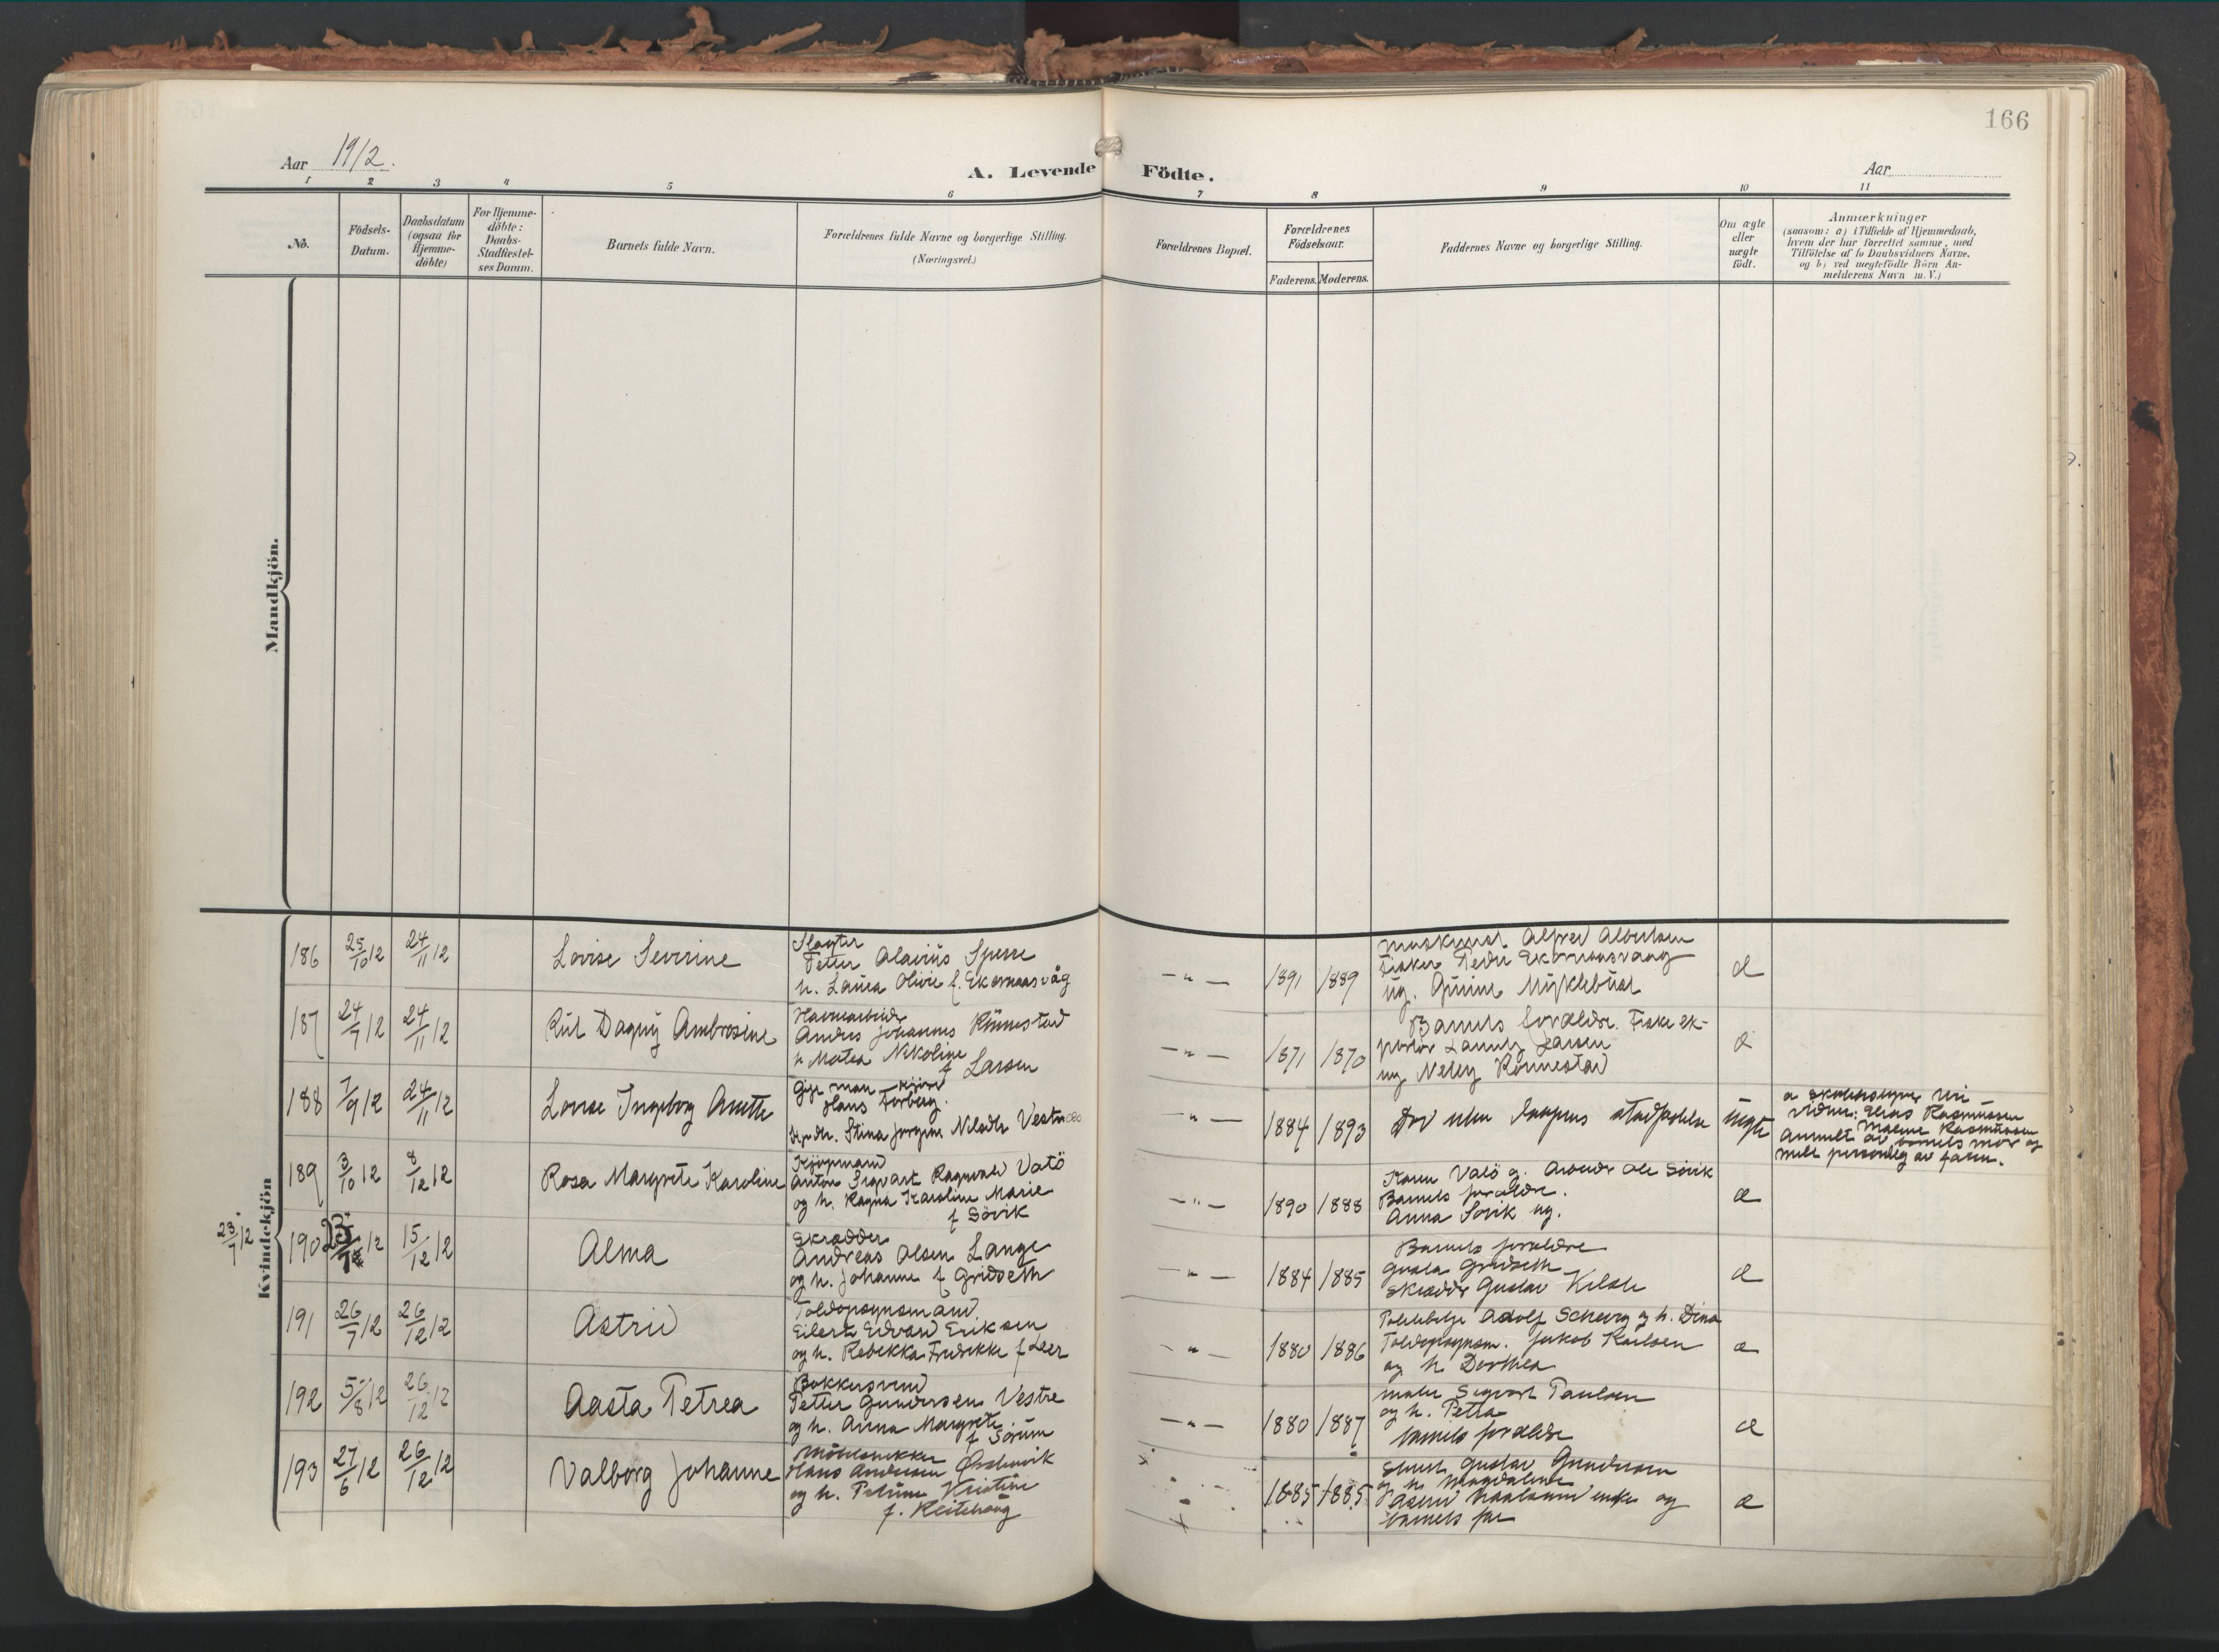 166
Aar 1912.
A. Levende Födte.
Aar
1 2 3 4 5 6 7 8 9 10 11
No.
Födsels-
Datum.
Daabsdatum
(ogsaa for
Hjemme-
döbte)
For Hjemme-
döbte:
Daabs-
Stadfæstel-
ses Datum.
Barnets fulde Navn.
Forældrenes fulde Navne og borgerlige Stilling.
(Næringsvei.)
Forældrenes Bopæl.
Forældrenes
Födselsaar.
Faderens. Moderens.
Faddernes Navne og borgerlige Stilling.
Om ægte
eller
uægte
födt.
Anmærkninger
(saasom: a) i Tilfælde af Hjemmedaab,
hvem der har forrettet samme, med
Tilföielse af to Daabsvidners Navne.
og b) ved uægtefödte Börn An-
melderens Navn m. V.)
Mandkjön.
Kvindekjön
186 25/10 12 24/11 12 Lovise Severine
Slagter
Petter
h. Laura Olivie f. Ekornaasvåg
— " — 1891 1889
Alfred Albertsen
Fisker Peder Ekornaasvaag
ug. Myklebust
æ
187 24/7 12 24/11 12 Rut Dagny Ambrosine
Havnearbeider
Andres Johannes Rönnestad
h Matea Nikoline
f Larsen
— " — 1871 1870
Barnets forældre. Fiske ek-
portör Larsen
ug Rönnestad
æ
188 7/9 12 24/11 12 Lovise Ingeborg Anette
Gift man
Hans Torberg.
Stina Jorgine Vestnæs
— " — 1884 1893
uegte
Elias Rasmussen
Rasmussen
Anmelt av barnets mor og
personlig av faren.
189 3/10 12 8/12 12 Rosa Margrete Karoline
Kjöpmand
Anton Sigvart Ragnvald Vatö
og h. Ragna Karoline Marie
f Sövik
— " — 1890 1888
Karen Vatö g. Arbeider Ole Sövik
Barnets forældre.
Anna Sövik ug.
æ
23/7 12
190 12 15/12 12 Alma
Skrædder
Andreas Olsen Lange
og h. Johanne f Gridseth
— " — 1884 1885
Barnets forældre
Gridseth
Skrædder Gustav
æ
191 26/7 12 26/12 12 Astrid
Toldopsynsmand
Eilert Edvard Eriksen
og h. Rebekka Fredrikke f Leer
— " — 1880 1886
Adolf og h. Dina
Toldopsynsm. Jakob Karlsen
og h Dorthea
æ
192 5/8 12 26/12 12 Aasta Petrea
Bøkkersvend
Petter Gundersen Vestre
og h. Anna Margrete
f Sörum
— " — 1880 1887
maler Sigvart Paulsen
og h. Petra
barnets forældre
æ
193 27/6 12 26/12 12 Valborg Johanne
Möbelsnekker
Hans Andersen
og h. Petrine Kristine
f. Reitehaug
1885 1885
Gustav Gundersen
og h. Magdalene
enke og
barnets far
æ